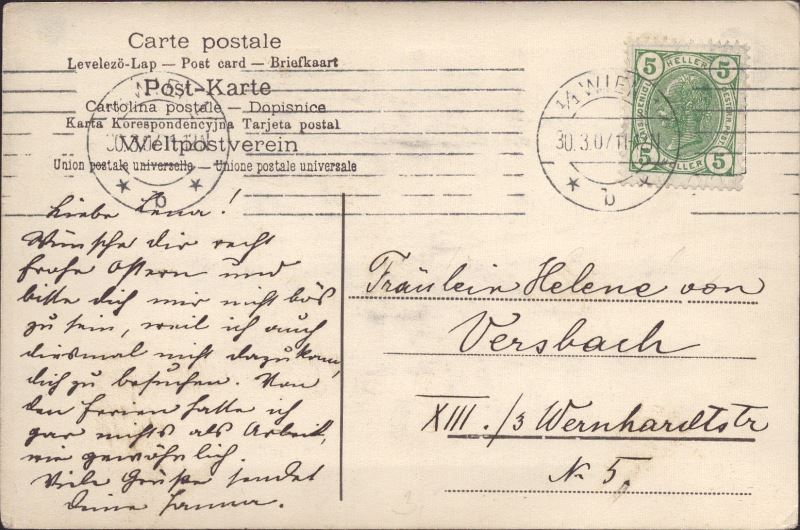 Carte postale
Levelezö-Lap — Post card — Briefkaart
Post-Karte
Cartolina postale — Dopisnice
Karta Korespondencyjna Tarjeta postal
Weltpostverein
Union postale universelle — Unione postale universale
WIEN
30.3.07
b
5 HELLER 5
5 HELLER 5
Liebe Lena!
Wünsche dir recht
frohe Ostern und
bitte dich mir nicht bös
zu sein, weil ich auch
diesmal nicht dazukam,
dich zu besuchen. Von
den Ferien hatte ich
gar nichts als Arbeit,
wie gewöhnlich.
Viele Grüße sendet
deine Hanna.
Fräulein Helene von
Versbach
XIII./3 Wernhardtstr
N 5.